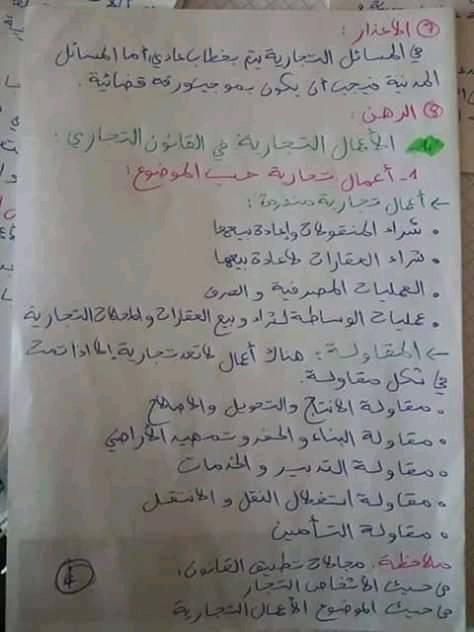 ④ الأعذار :
في المسائل التجارية يتم بخطاب عادي، أما المسائل
المدنية فيجب أن يكون بموجب ورقة قضائية.
⑤ الرهن :
الأعمال التجارية في القانون التجاري .
1- أعمال تجارية حسب الموضوع :
← أعمال تجارية منفردة :
• شراء المنقولات وإعادة بيعها
• شراء العقارات لإعادة بيعها
• العمليات المصرفية والصرف
• عمليات الوساطة لشراء وبيع العقارات والمحلات التجارية
← المقاولة : هناك أعمال لا تعد تجارية إلا إذا تمت
في شكل مقاولة.
• مقاولة الإنتاج والتحويل والإصلاح
• مقاولة البناء والحفر وتمهيد الأراضي
• مقاولة التوريد والخدمات
• مقاولة استغلال النقل والانتقال
• مقاولة التأمين
ملاحظة. مجالات تطبيق القانون :
من حيث الأشخاص التجار
من حيث الموضوع الأعمال التجارية